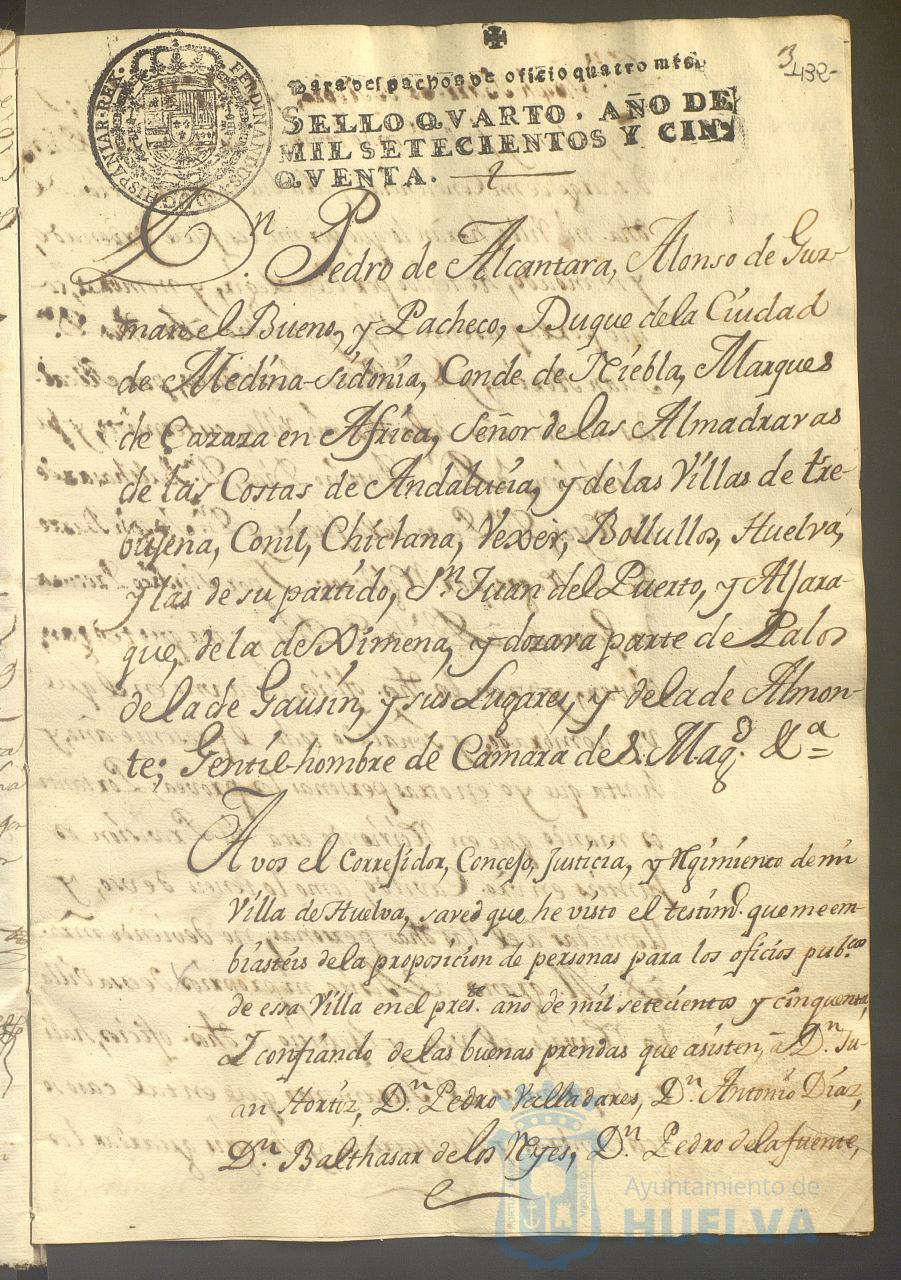 3
432
Para despachos de oficio quatro mrs.
SELLO QVARTO, AÑO DE
MIL SETECIENTOS Y CIN-
QVENTA.
FERDINANDUS
HISPANIAR. REX.
Dn. Pedro de Alcantara, Alonso de Guz-
man el Bueno, y Pacheco, Duque de la Ciudad
de Medina-Sidonia, Conde de Niebla, Marques
de Cazaza en Africa, Señor de las Almadravas
de las Costas de Andalucia, y de las Villas de tre-
bujena, Conil, Chiclana, Vexer, Bollullos, Huelva,
y las de su partido, Sn. Juan del Puerto, y Aljara-
que, de la de Ximena, y dozava parte de Palos
de la de Gausin, y sus Lugares, y de la de Almon-
te; Gentil-hombre de Camara de S. Magd. &a =
A vos el Correjidor, Concejo, Justicia, y Rgimiento de mi
Villa de Huelva, saved que he visto el testimo. que me em-
biasteis de la proposicion de personas para los oficios pubcos
de essa Villa en el preste. año de mil setecientos y cinquenta,
Y confiando de las buenas prendas que asisten, a Dn. Ju-
an Hortiz, Dn. Pedro Valladares, Dn. Antonio Diaz,
Dn. Balthasar de los Reyes, Dn. Pedro de la fuente,
Ayuntamiento de
HUELVA